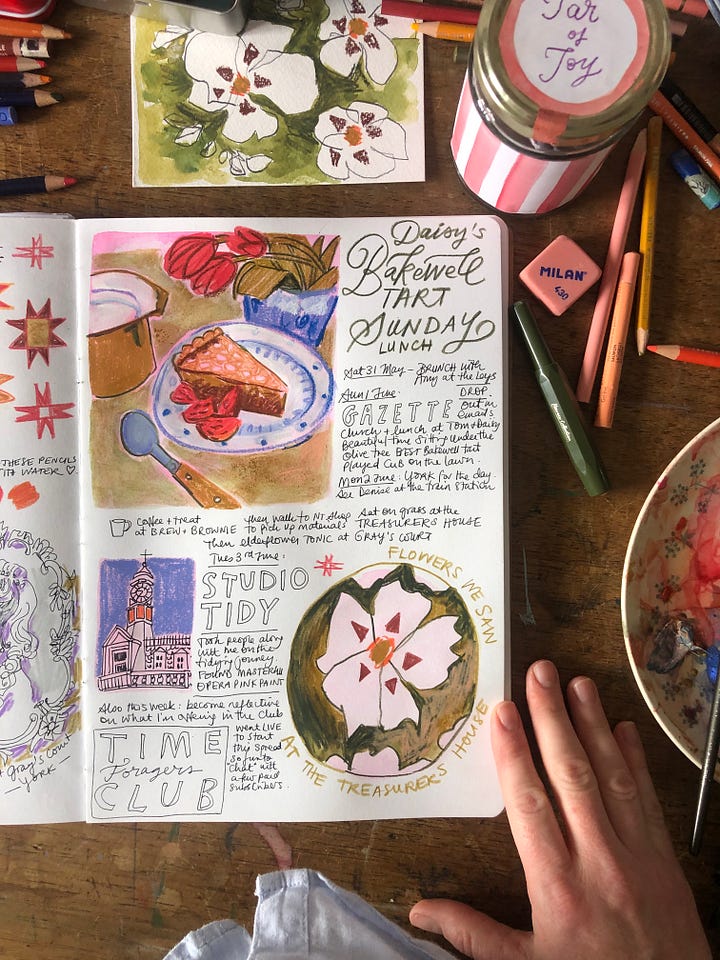 Jar
of
Joy
MILAN®
430
THESE PENCILS
TO WATER ♡
Gray's
YORK
Daisy's
Bakewell
TART
SUNDAY
LUNCH
Sat 31 May – BRUNCH with
Amy at the Leys
Sun 1 June:
DROP
GAZETTE
out in
emails
Church + lunch at Tom + Daisy
Beautiful time sitting under the
Olive tree BEST Bakewell tart
Played Cub on the lawn.
Mon 2 June: YORK for the day.
See Denise at the train station
Coffee + treat
at BREW + BROWNIE
then walk to NT shop
to pick up materials
Sat on grass at the
TREASURERS HOUSE
Then elderflower TONIC at GRAY'S COURT
Tues 3rd June:
STUDIO
TIDY
Took people along
with me on the
tidying journey.
FOUND MASTERFUL
OPERA PINK PAINT
FLOWERS WE SAW
AT THE TREASURERS HOUSE
Also this week: become reflective
on what I'm offering in the Club
TIME
Foragers
CLUB
went LIVE
to start
this spread
so fun to
"chat" with
a few paid
subscribers.